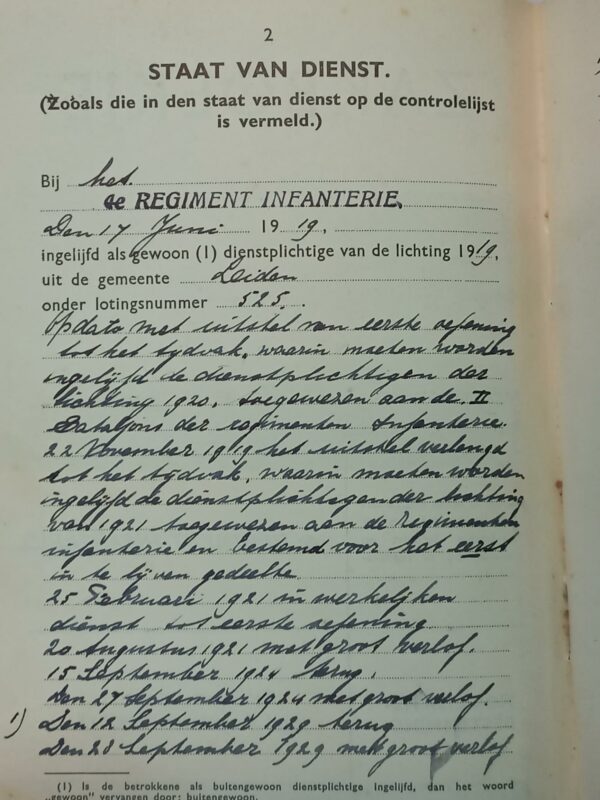 2
STAAT VAN DIENST.
(Zooals die in den staat van dienst op de controlelijst
is vermeld.)
Bij het.
4e REGIMENT INFANTERIE,
Den 17 Juni 19 19,
ingelijfd als gewoon (1) dienstplichtige van de lichting 1919,
uit de gemeente Leiden
onder lotingsnummer 525.
Op dato met uitstel van eerste oefening
tot het tydvak, waarin moeten worden
ingelyfd de dienstplichtigen der
lichting 1920, toegewezen aan de II
Bataljons der regimenten Infanterie.
22 November 1919 het uitstel verlengd
tot het tydvak, waarin moeten worden
ingelyfd de dienstplichtegen der lichting
van 1921 toegewezen aan de Regimenten
infanterie en bestemd voor het eerst
in te lyven gedeelte
25 Februari 1921 in werkelyken
dienst tot eerste oefening
20 Augustus 1921 met groot verlof.
15 September 1924 terug.
Den 27 September 1924 met groot verlof.
1) Den 12 September 1929 terug
Den 28 September 1929 met groot verlof
(1) Is de betrokkene als buitengewoon dienstplichtige ingelijfd, dan het woord
„gewoon" vervangen door: buitengewoon.